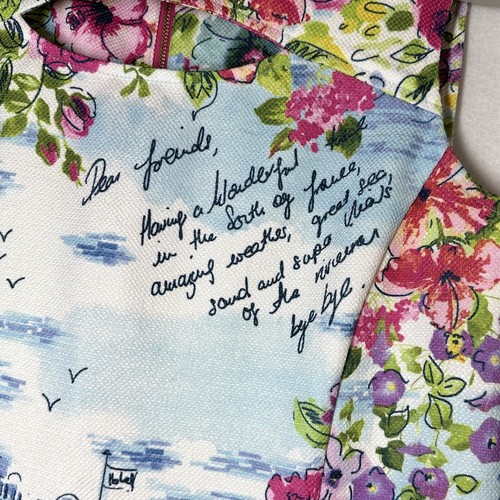 Dear friends,
Having a Wonderful
in the South of France,
amazing weather, great sea,
sand and super
of the rivieras
bye bye.
Hotel